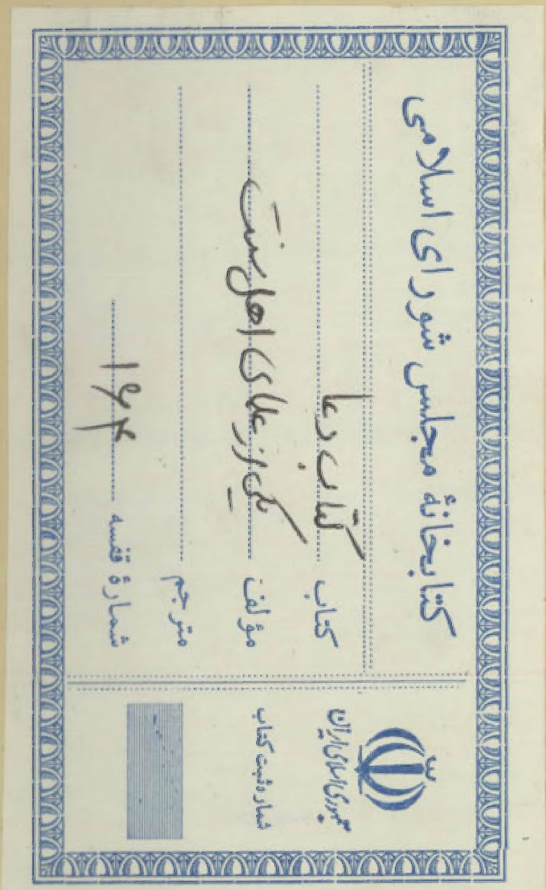 کتابخانهٔ مجلس شورای اسلامی
کتاب کتاب دعا
مؤلف یکی از علمای اهل سنت
مترجم
شمارهٔ قفسه ۱۶۴
جمهوری اسلامی ایران
شماره ثبت کتاب